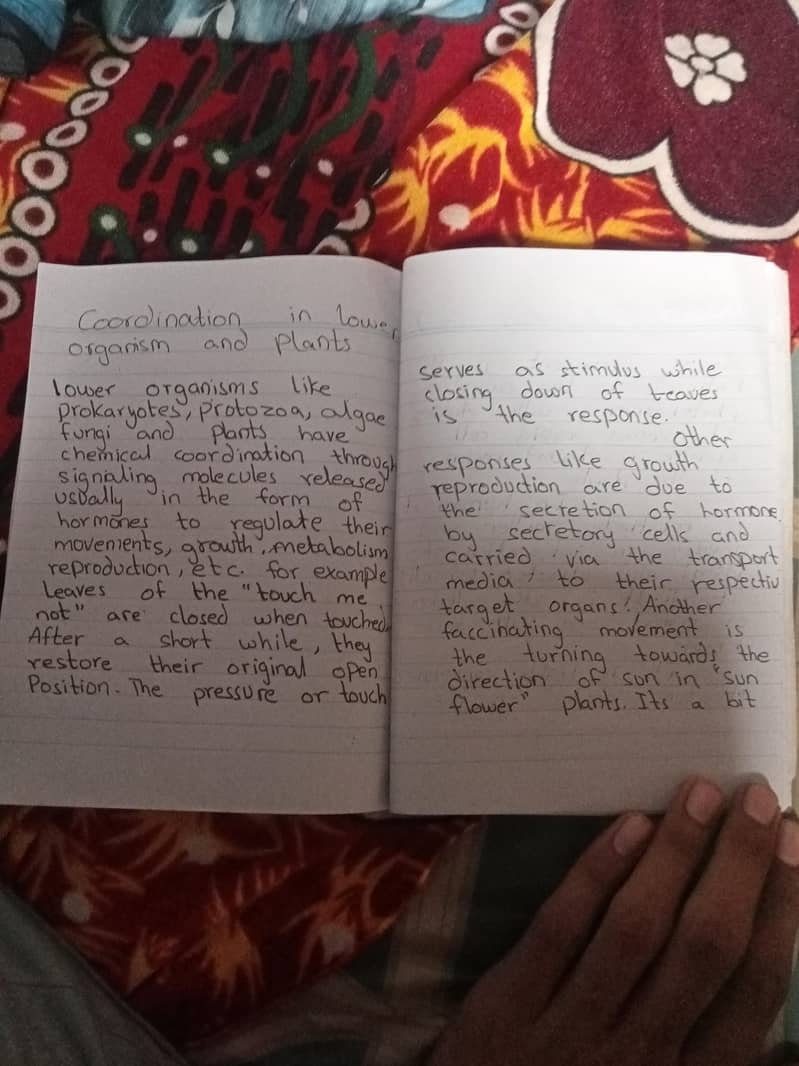 Coordination in lower
organism and plants
lower organisms like
prokaryotes, protozoa, algae
fungi and plants have
chemical coordination through
signaling molecules released
usually in the form of
hormones to regulate their
movements, growth, metabolism
reproduction, etc. for example
Leaves of the "touch me
not" are closed when touched.
After a short while, they
restore their original open
Position. The pressure or touch
serves as stimulus while
closing down of leaves
is the response.
Other
responses like growth
reproduction are due to
the secretion of hormone
by secretory cells and
carried via the transport
media to their respectiv
target organs. Another
faccinating movement is
the turning towards the
direction of sun in "sun
flower" plants. Its a bit